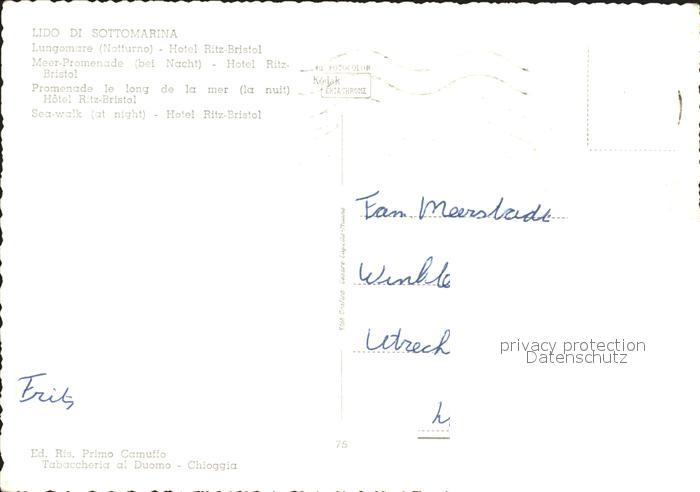 LIDO DI SOTTOMARINA
Lungomare (Notturno) - Hotel Ritz-Bristol
Meer-Promenade (bei Nacht) - Hotel Ritz-
Bristol
Promenade le long de la mer (la nuit)
Hôtel Ritz-Bristol
Sea-walk (at night) - Hotel Ritz-Bristol
FOTOCOLOR
Kodak
EKTACHROME
Fam Meerstadt
Winkle
Utrech
privacy protection
Datenschutz
Frits
75
Ed. Ris. Primo Camuffo
Tabaccheria al Duomo - Chioggia